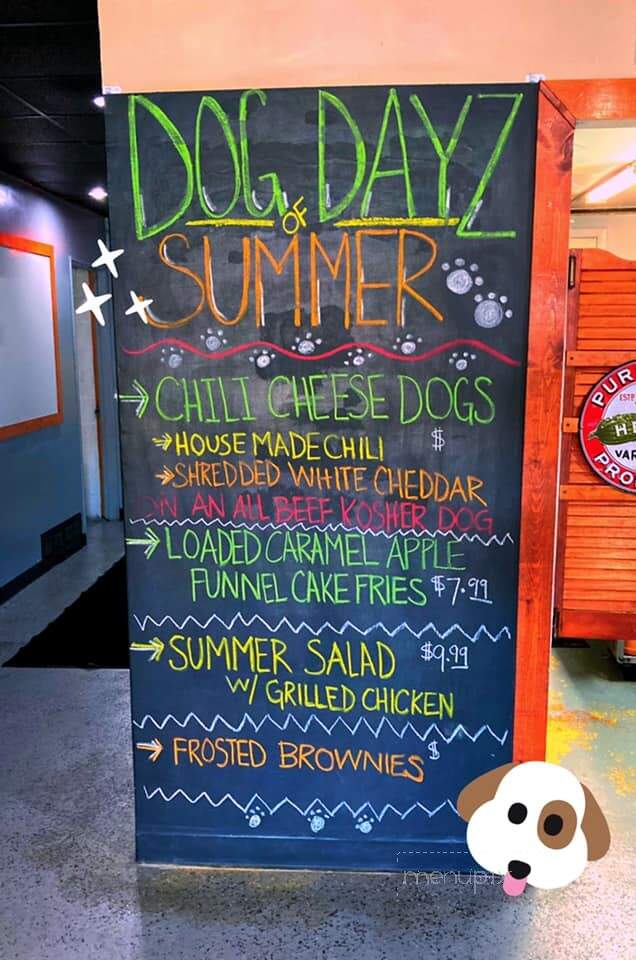 DOG DAYZ
OF
SUMMER
CHILI CHEESE DOGS
HOUSE MADE CHILI $
SHREDDED WHITE CHEDDAR
ON AN ALL BEEF KOSHER DOG
LOADED CARAMEL APPLE
FUNNEL CAKE FRIES $7.99
SUMMER SALAD $9.99
W/ GRILLED CHICKEN
FROSTED BROWNIES $
PUR
ESTD
H
VAR
PRO